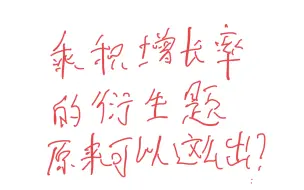 乘积增长率
的衍生题
原来可以这么出?